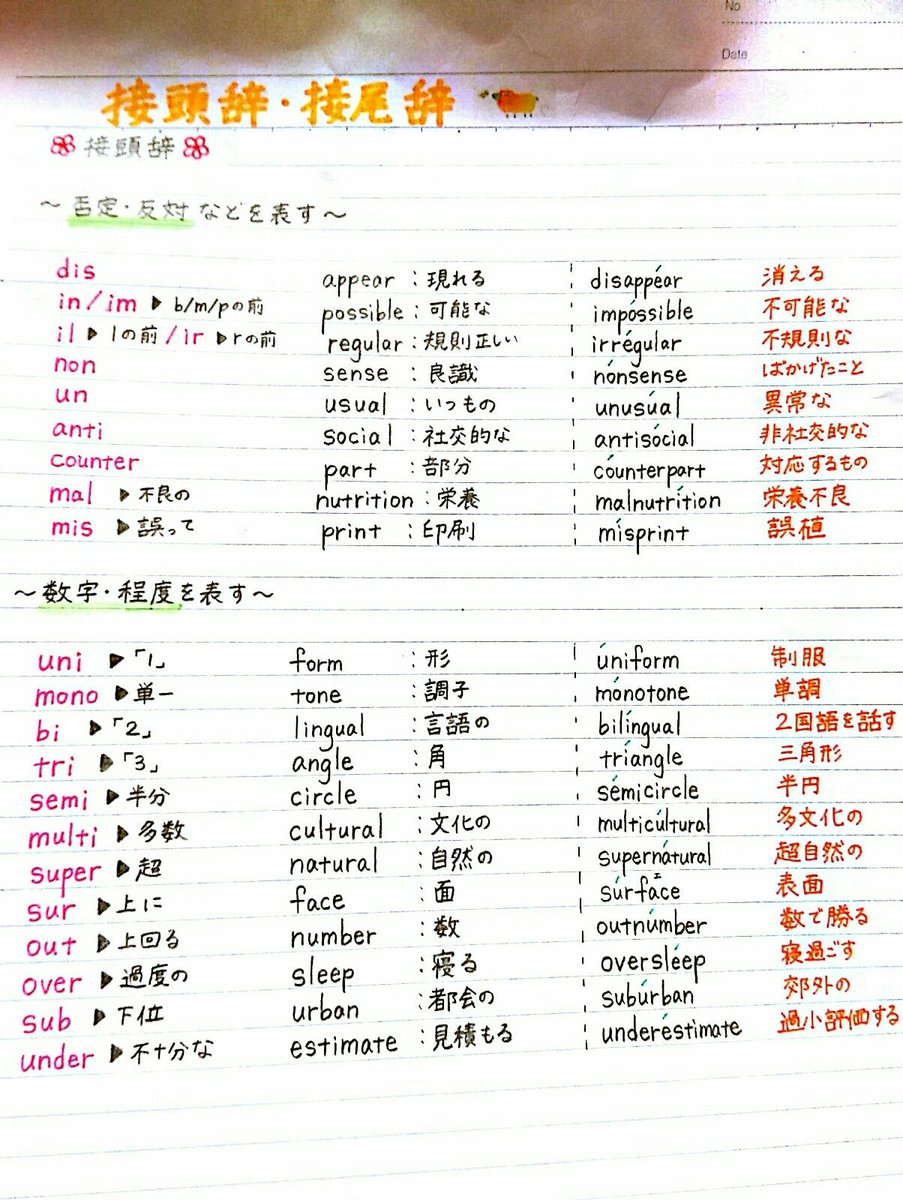 No
Date
接頭辞・接尾辞
接頭辞
～否定・反対などを表す～
dis appear : 現れる disappéar 消える
in/im ▶ b/m/pの前 possible : 可能な impóssible 不可能な
il ▶ lの前/ir ▶rの前 regular : 規則正しい irrégular 不規則な
non sense : 良識 nónsense ばかげたこと
un usual : いつもの unusúal 異常な
anti social : 社交的な antisócial 非社交的な
counter part : 部分 cóunterpart 対応するもの
mal ▶ 不良の nutrition : 栄養 malnutrítion 栄養不良
mis ▶ 誤って print : 印刷 mísprint 誤植
～数字・程度を表す～
uni ▶「1」 form : 形 úniform 制服
mono ▶単一 tone : 調子 mónotone 単調
bi ▶「2」 lingual : 言語の bilíngual 2国語を話す
tri ▶「3」 angle : 角 tríangle 三角形
semi ▶半分 circle : 円 sémicircle 半円
multi ▶多数 cultural : 文化の multicúltural 多文化の
super ▶超 natural : 自然の supernátural 超自然の
sur ▶上に face : 面 súrface 表面
out ▶上回る number : 数 outnúmber 数で勝る
over ▶過度の sleep : 寝る oversléep 寝過ごす
sub ▶下位 urban : 都会の subúrban 郊外の
under ▶不十分な estimate : 見積もる underéstimate 過小評価する